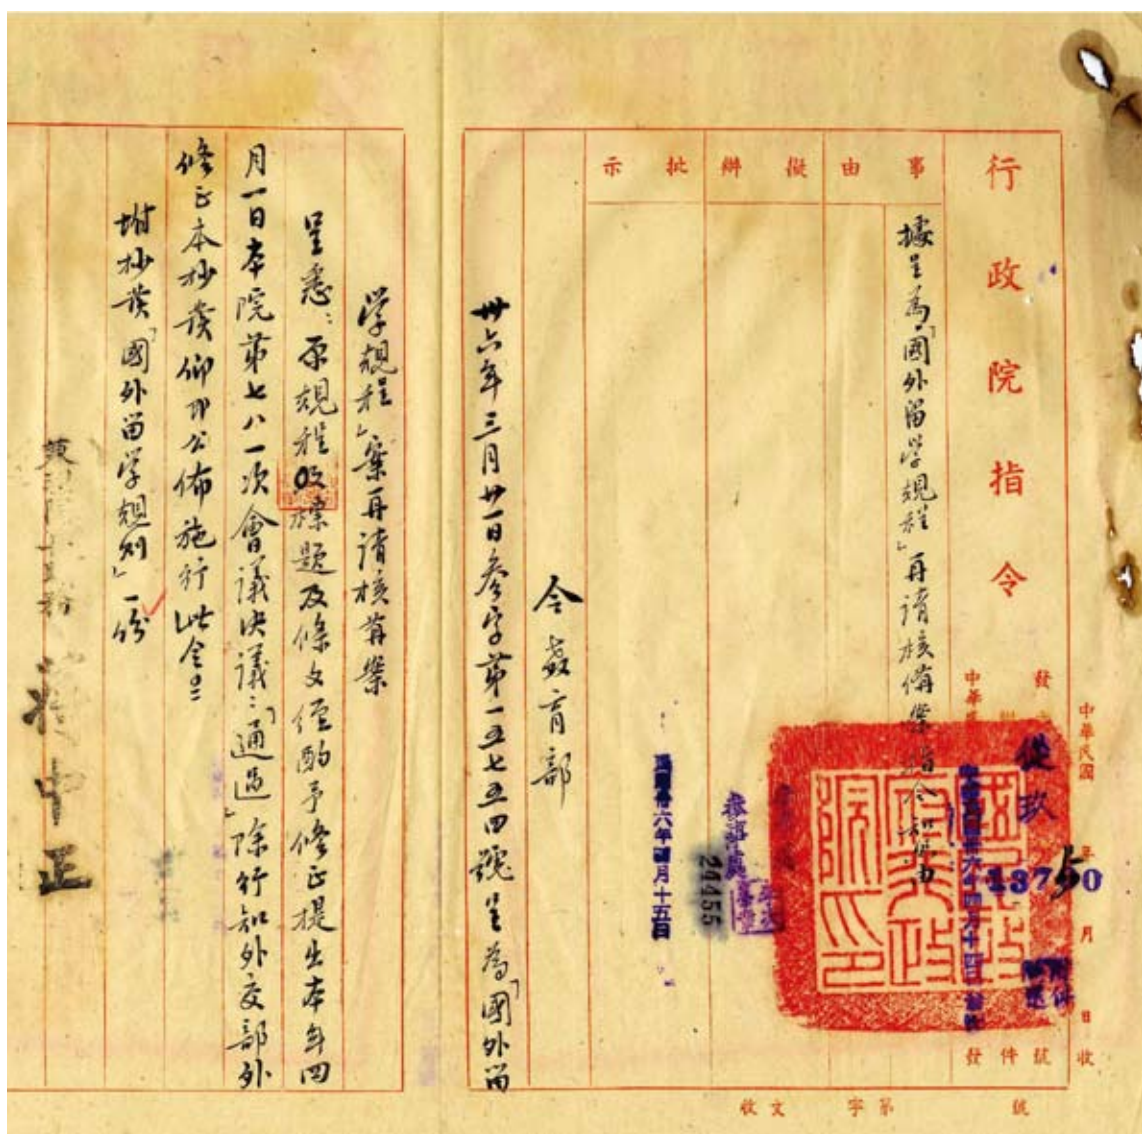 行政院指令
事由
擬辦
批示
據呈為「國外留學規程」再請核備案指令知照由
中華民國 年 月 日 收
從玖
13750
附件
發
號
件
發
收文 字第 號
民國卅六年四月十五日
24455
令教育部
卅六年三月廿一日參字第一五七五四號呈為「國外留
学規程」案再請核備案
呈悉：原規程改標題及條文經酌予修正提出本年四
月一日本院第七八一次會議決議：「通過」除行知外交部外
修正本抄發仰即公佈施行此令
附抄發「國外留学規則」一份
蔣中正